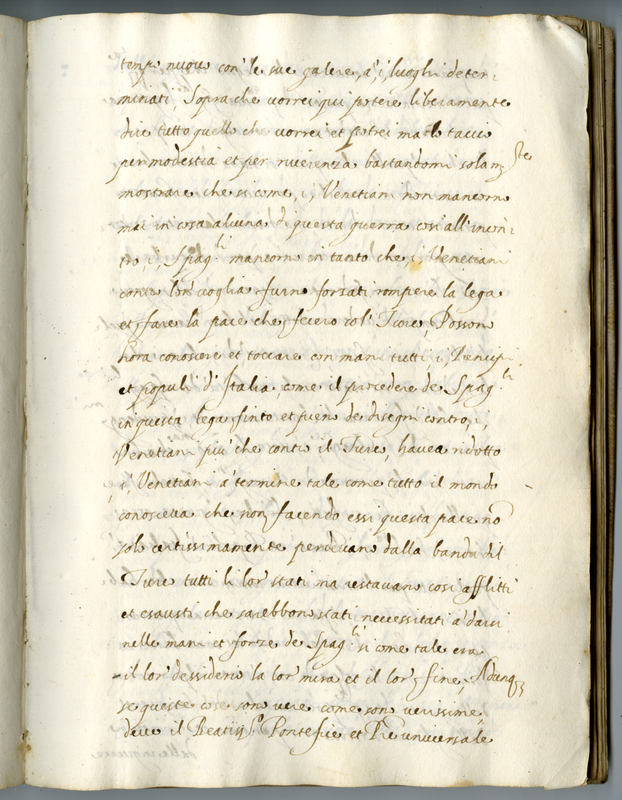 tempo nuovo con le sue galere, à, i, luoghi deter-
minati, Sopra che vorrei qui potere liberamente
dire tutto quello che vorrei et potrei ma lo taccio
per modestia et per riverenza bastandomi solam.te
mostrare che si come, i, Venetiani non mancorno
mai in cosa alcuna di questa guerra così all'incon-
tro, i, Spag.li mancorno in tanto che, i, Venetiani
contro lor voglia furno forsati rompere la lega
et fare la pace che fecero col' Turco, Possono
hora conoscere et toccare con mani tutti i, Prencipi
et populi d'Italia, come il procedere de Spag.li
in questa lega finto et pieno de disegni contro, i,
Venetiani più che contro il Turco, havea ridotto
, i, Venetiani à termine tale come tutto il mondo
conosceva che non facendo essi questa pace nō
solo certissimamente perdevano dalla banda del
Turco tutti li lor stati ma restavano così afflitti
et esausti che sarebbono stati necessitati à darsi
nelle mani et forze de Spag.li si come tale era
il lor dessiderio la lor mira et il lor fine, Adunq;
se queste cose sono vere come sono verissime,
deve il Beatiss.o Pontefice et Pr̄e universale